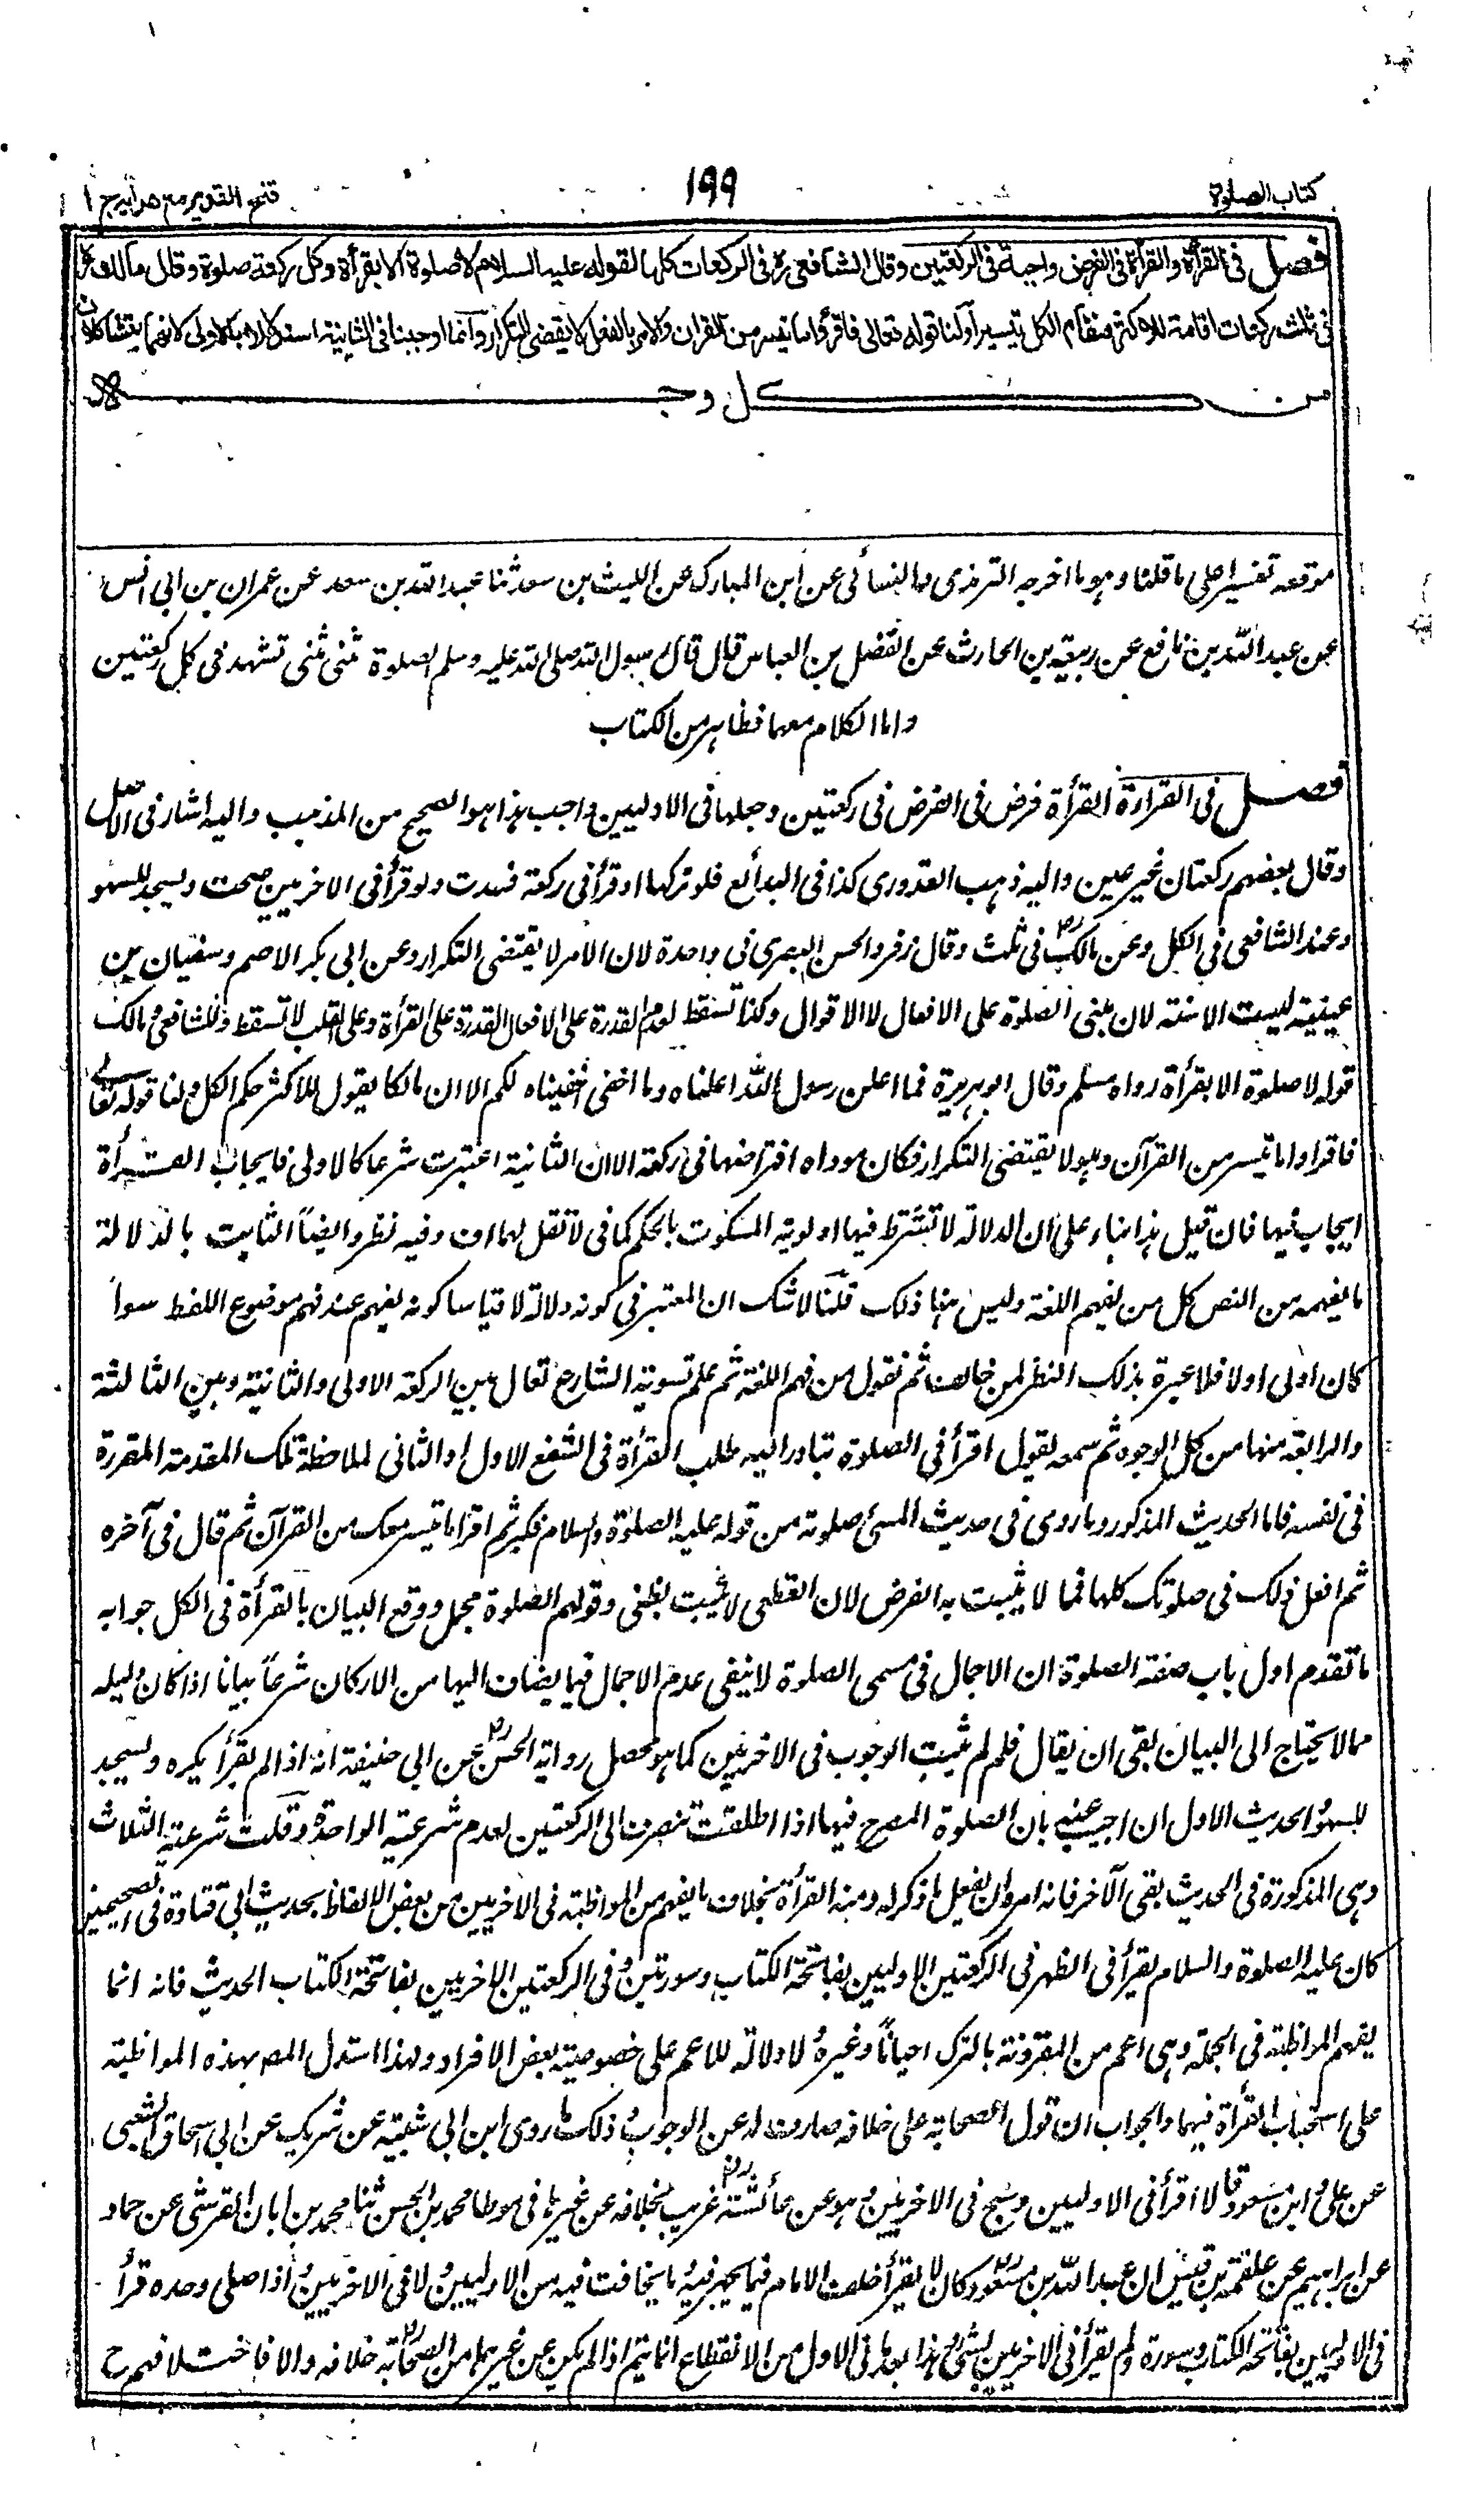 كتاب الصلوة
١٩٩
فتح القدير مع هدايه ج ١
فصل فى القرأة والقرأة فى الفرض واجبة فى الركعتين وقال الشافعى رح فى الركعات كلها لقوله عليه السلام لا صلوة الا بقرأة وكل ركعة صلوة وقال مالك رح
فى ثلث ركعات اقامة للاكثر مقام الكل تيسيرا ولنا قوله تعالى فاقرؤا ما تيسر من القران والامر بالفعل لا يقتضى التكرار وانما اوجبنا فى الثانية استدلالا بالاولى لانهما يتشاكلان
من كل وجه
موقعه تفسيرا على ما قلنا وهو ما اخرجه الترمذى والنسائى عن ابن المبارك عن الليث بن سعد ثنا عبد الله بن سعد عن عمران بن ابى انس
عن عبد الله بن نافع عن ربيعة بن الحارث عن الفضل بن العباس قال قال رسول الله صلى الله عليه وسلم الصلوة مثنى مثنى تشهد فى كل ركعتين
واما الكلام معها فظاهر من الكتاب
فصل فى القراءة القرأة فرض فى الفرض فى ركعتين وجعلها فى الاوليين واجب هذا هو الصحيح من المذهب واليه اشار فى الاصل
وقال بعضهم ركعتان غير عين واليه ذهب القدورى كذا فى البدائع فلو تركها او قرأ فى ركعة فسدت ولو قرأ فى الاخريين صحت ويسجد للسهو
وعند الشافعى فى الكل وعن مالك رح فى ثلث وقال زفر والحسن البصرى فى واحدة لان الامر لا يقتضى التكرار وعن ابى بكر الاصم وسفيان بن
عيينة ليست الا سنة لان مبنى الصلوة على الافعال لا الاقوال وكذا تسقط لعدم القدرة على الافعال القدرة على القرأة وعلى القلب لا تسقط وللشافعى ومالك
قوله لا صلوة الا بقرأة رواه مسلم وقال ابو هريرة فما اعلن رسول الله اعلناه وما اخفى اخفيناه لكم الا ان مالكا يقول للاكثر حكم الكل ولنا قوله تعالى
فاقراوا ما تيسر من القرآن وهو لا يقتضى التكرار فكان موداه افتراضها فى ركعة الا ان الثانية اعتبرت شرعا كالاولى فايجاب القرأة
ايجاب فيها فان قيل هذا بناء على ان الدلالة لا تشترط فيها اولوية المسكوت بالحكم كما فى لا تقل لهما اف وفيه نظر وايضا الثابت بالدلالة
ما يفهمه من النص كل من يفهم اللغة وليس هنا ذلك قلنا لا شك ان المعتبر فى كونه دلالة لا قياسا كونه يفهم عند فهم موضوع اللفظ سواء
كان اولى اولا فلا عبرة بذلك النظر لمن خالف ثم نقول من فهم اللغة ثم علم تسوية الشارع تعالى بين الركعة الاولى والثانية وبين الثالثة
والرابعة منها من كل الوجوه ثم سمعه يقول اقرأ فى الصلوة تبادر اليه طلب القرأة فى الشفع الاول او الثانى لملاحظة تلك المقدمة المقررة
فى نفسه فاما الحديث المذكور وما روى فى حديث المسئ صلوته من قوله عليه الصلوة والسلام فكبر ثم اقرأ ما تيسر معك من القرآن ثم قال فى آخره
ثم افعل ذلك فى صلوتك كلها فما لا يثبت به الفرض لان القطعى لا يثبت بظنى وقولهم الصلوة مجمل ووقع البيان بالقرأة فى الكل جوابه
ما تقدم اول باب صفة الصلوة ان الاجمال فى مسمى الصلوة لا ينفى عدم الاجمال فيما يضاف اليها من الاركان شرعا بيانا اذا كان دليله
مما لا يحتاج الى البيان بقى ان يقال فلم لم يثبت الوجوب فى الاخريين كما هو محصل رواية الحسن رح عن ابى حنيفة انه اذا لم يقرأ يكره ويسجد
للسهو الحديث الاول ان اجيب عنه بان الصلوة المصرح فيها اذا اطلقت تنصرف الى الركعتين لعدم شرعية الواحدة وقلت شرعية الثلاث
وهى المذكورة فى الحديث بقى الآخر فانه امر وان يفعل ما ذكر له ومنه القرأة بخلاف ما يفهم من المواظبة فى الاخريين من بعض الالفاظ بحديث ابى قتادة فى الصحيحين
كان عليه الصلوة والسلام يقرأ فى الظهر فى الركعتين الاوليين بفاتحة الكتاب وسورتين وفى الركعتين الاخريين بفاتحة الكتاب الحديث فانه انما
يفهم المواظبة فى الجملة وهى اعم من المقرونة بالترك احيانا وغيره ولا دلالة للاعم على خصوصية بعض الافراد ولهذا استدل المص بهذه المواظبة
على استحباب القرأة فيهما والجواب ان قول الصحابة على خلافه صارف له عن الوجوب وذلك ما روى ابن ابى شيبة عن شريك عن ابى اسحاق الشعبى
عن على وابن مسعود قالا اقرأ فى الاوليين وسبح فى الاخريين وهو عن عائشة رض غريب بخلافه عن غيرها فى موطا محمد بن الحسن ثنا محمد بن ابان القرشى عن حماد
عن ابراهيم عن علقمة بن قيس ان عبد الله بن مسعود رض كان لا يقرأ خلف الامام فيما يجهر فيه وما يخافت فيه من الاوليين ولا فى الاخريين واذا صلى وحده قرأ
فى الاوليين بفاتحة الكتاب وسورة ولم يقرأ فى الاخريين بشئ وهذا بعد ما فى الاول من الانقطاع انما يتم اذا لم يكن عن غيرهما من الصحابة خلافه والا فاختلافهم ح